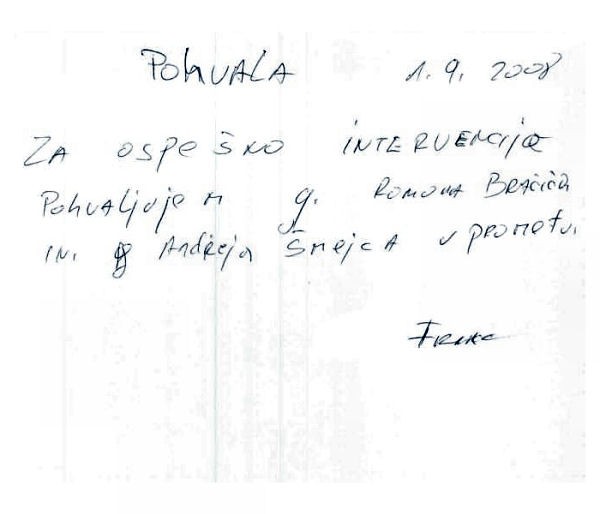 POHVALA 1. 9. 2008
ZA OSPEŠNO INTERVENCIJO
POHVALJUJEM g. ROMONA BRAČIČA
IN. g Andreja ŠMEJCA v prometu.